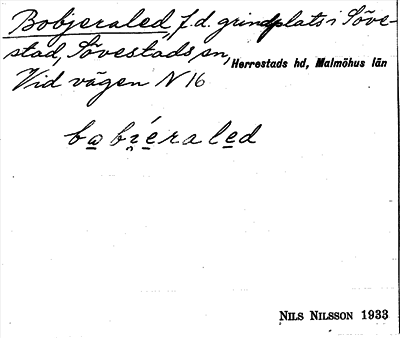 Bobjeraled, f.d. grindplats i Söve-
stad, Sövestads sn, Herrestads hd, Malmöhus län
Vid vägen N 16
babi̯éraled
NILS NILSSON 1933